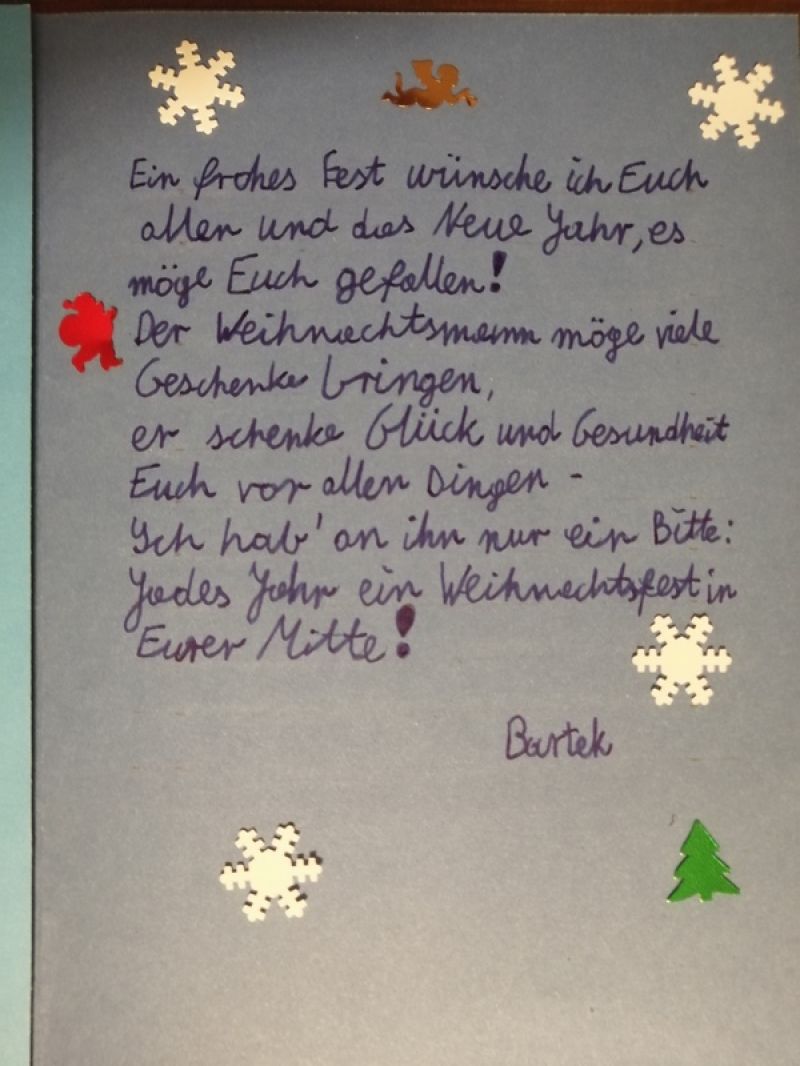 Ein frohes Fest wünsche ich Euch
allen und das Neue Jahr, es
möge Euch gefallen!
Der Weihnachtsmann möge viele
Geschenke bringen,
er schenke Glück und Gesundheit
Euch vor allen Dingen -
Ich hab' an ihn nur ein Bitte:
Jedes Jahr ein Weihnachtsfest in
Eurer Mitte!
Bartek